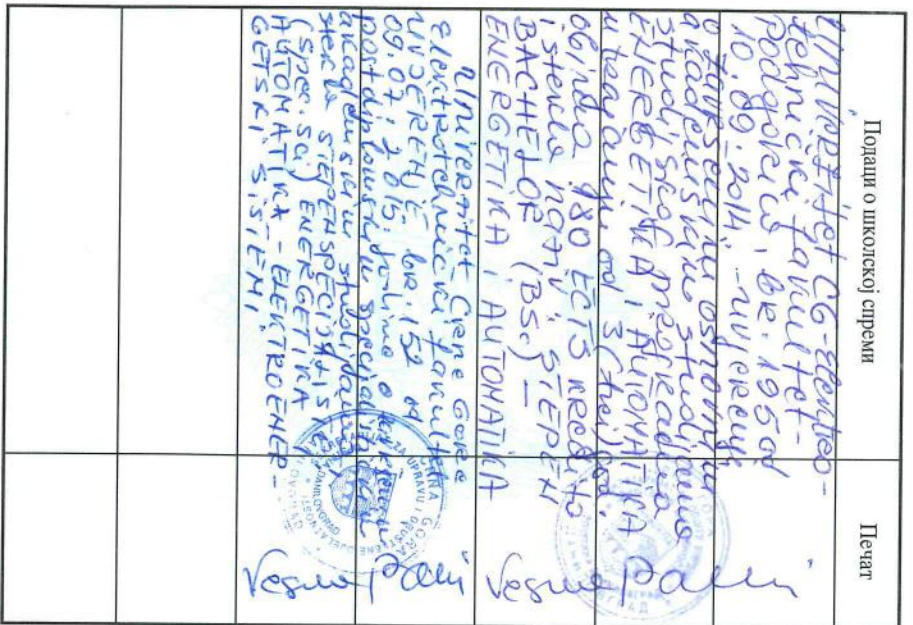 Подаци о школској спреми
Печат
Univerzitet CG-Elektro-
tehnički fakultet-
Podgorica, br. 195 od
10.09.2014. - uvjerenje
o završenim osnovnim
akademskim studijama
studijskog programa
ENERGETIKA I AUTOMATIKA
u trajanju od 3 (tri) god.
obima 180 ECTS kredita
i stekla naziv STEPEN
BACHELOR (BSc.) –
ENERGETIKA I AUTOMATIKA
Univerzitet Crne Gore
Elektrotehnički fakultet
UVJERENJE br. 152 od
09.07.2015. godine o
postdiplomskim specijalističkim
akademskim studijama
stek la STEPEN SPECIJALISTE
(Spec.Sci) ENERGETIKA I
AUTOMATIKA - ELEKTROENER-
GETSKI SISTEMI
CRNA GORA
ZA UPRAVU I DRUŠTVENE DJELATNOSTI
DANILOVGRAD
Vesna
Vesna